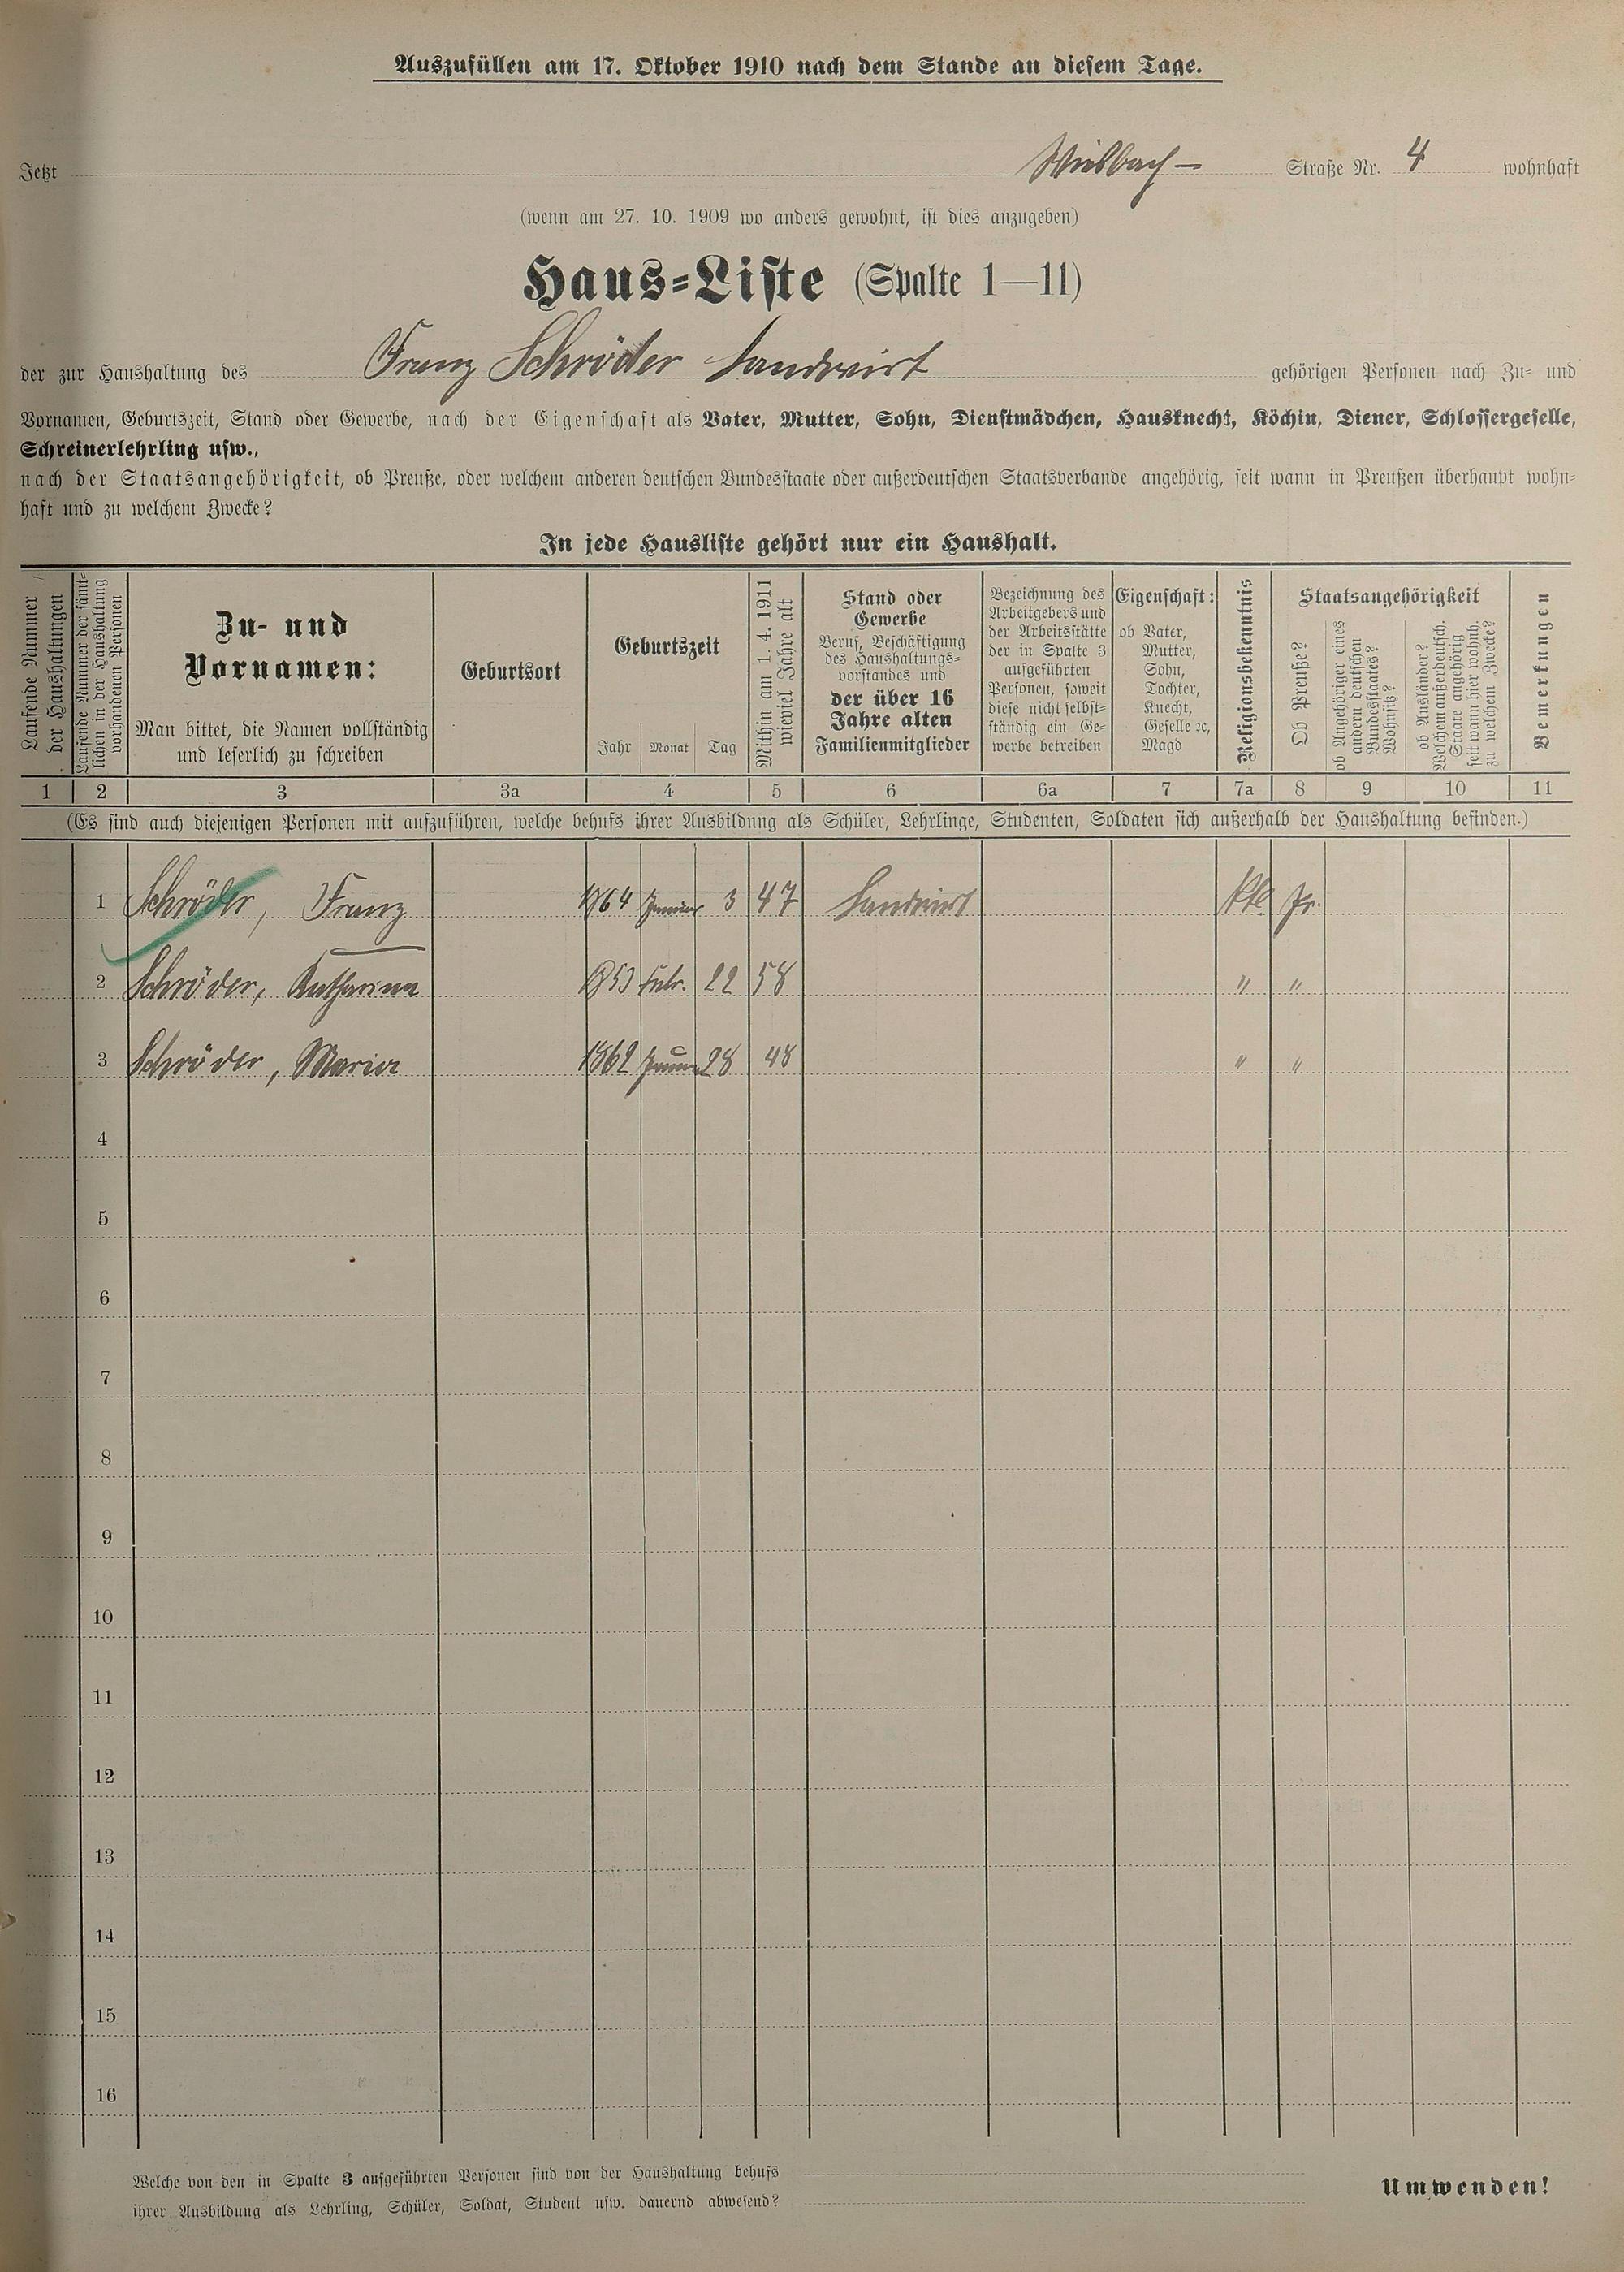 Auszufüllen am 17. Oktober 1910 nach dem Stande an diesem Tage.
Jetzt Wiesbach- Straße Nr. 4 wohnhaft
(wenn am 27. 10. 1909 wo anders gewohnt, ist dies anzugeben)
Haus-Liste (Spalte 1—11)
der zur Haushaltung des Franz Schröder Landwirt gehörigen Personen nach Zu- und
Vornamen, Geburtszeit, Stand oder Gewerbe, nach der Eigenschaft als Vater, Mutter, Sohn, Dienstmädchen, Hausknecht, Köchin, Diener, Schlossergeselle,
Schreinerlehrling usw.,
nach der Staatsangehörigkeit, ob Preuße, oder welchem anderen deutschen Bundesstaate oder außerdeutschen Staatsverbande angehörig, seit wann in Preußen überhaupt wohn-
haft und zu welchem Zwecke?
In jede Hausliste gehört nur ein Haushalt.
Laufende Nummer
der Haushaltungen
Laufende Nummer der sämt-
lichen in der Haushaltung
vorhandenen Personen
Zu- und
Vornamen:
Man bittet, die Namen vollständig
und leserlich zu schreiben
Geburtsort
Geburtszeit
Jahr Monat Tag
Mithin am 1. 4. 1911
wieviel Jahre alt
Stand oder
Gewerbe
Beruf, Beschäftigung
des Haushaltungs-
vorstandes und
der über 16
Jahre alten
Familienmitglieder
Bezeichnung des
Arbeitgebers und
der Arbeitsstätte
der in Spalte 3
aufgeführten
Personen, soweit
diese nicht selbst-
ständig ein Ge-
werbe betreiben
Eigenschaft:
ob Vater,
Mutter,
Sohn,
Tochter,
Knecht,
Geselle ꝛc,
Magd
Religionsbekenntnis
Staatsangehörigkeit
Ob Preuße?
ob Angehöriger eines
andern deutschen
Bundesstaates?
Wohnsitz?
ob Ausländer?
Welchem außerdeutsch.
Staate angehörig
seit wann hier wohnh.
zu welchem Zwecke?
Bemerkungen
1 2 3 3a 4 5 6 6a 7 7a 8 9 10 11
(Es sind auch diejenigen Personen mit aufzuführen, welche behufs ihrer Ausbildung als Schüler, Lehrlinge, Studenten, Soldaten sich außerhalb der Haushaltung befinden.)
1 Schröder, Franz 1864 Januar 3 47 Landwirt kth. Pr.
2 Schröder, Katharina 1853 Febr. 22 58 " "
3 Schröder, Maria 1862 Januar 28 48 " "
4
5
6
7
8
9
10
11
12
13
14
15
16
Welche von den in Spalte 3 aufgeführten Personen sind von der Haushaltung behufs
ihrer Ausbildung als Lehrling, Schüler, Soldat, Student usw. dauernd abwesend?
Umwenden!